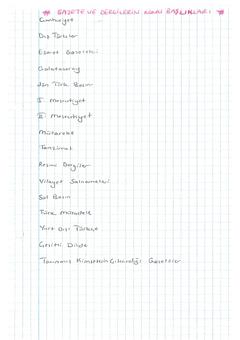 * GAZETE VE DERGİLERİN KONU BAŞLIKLARI *
Cumhuriyet
Dış Türkler
Esaret Gazeteleri
Galatasaray
Türk Basın
I. Meşrutiyet
II. Meşrutiyet
Mütareke
Tanzimat
Resmi Dergiler
Vilayet Salnameleri
Sol Basın
Türk
Yurt Dışı Türkçe
Çeşitli Dilde
Tanınmış Çıkardığı Gazeteler